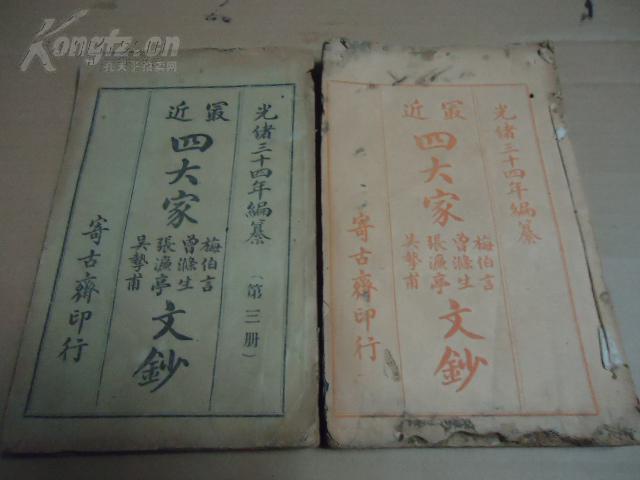 Kongfz.cn
孔夫子拍卖网
光緒三十四年編纂
(第三册)
最近
四大家
梅伯言
曾滌生
張濂亭
吴摯甫
文鈔
寄古齋印行
光緒三十四年編纂
最近
四大家
梅伯言
曾滌生
張濂亭
吴摯甫
文鈔
寄古齋印行